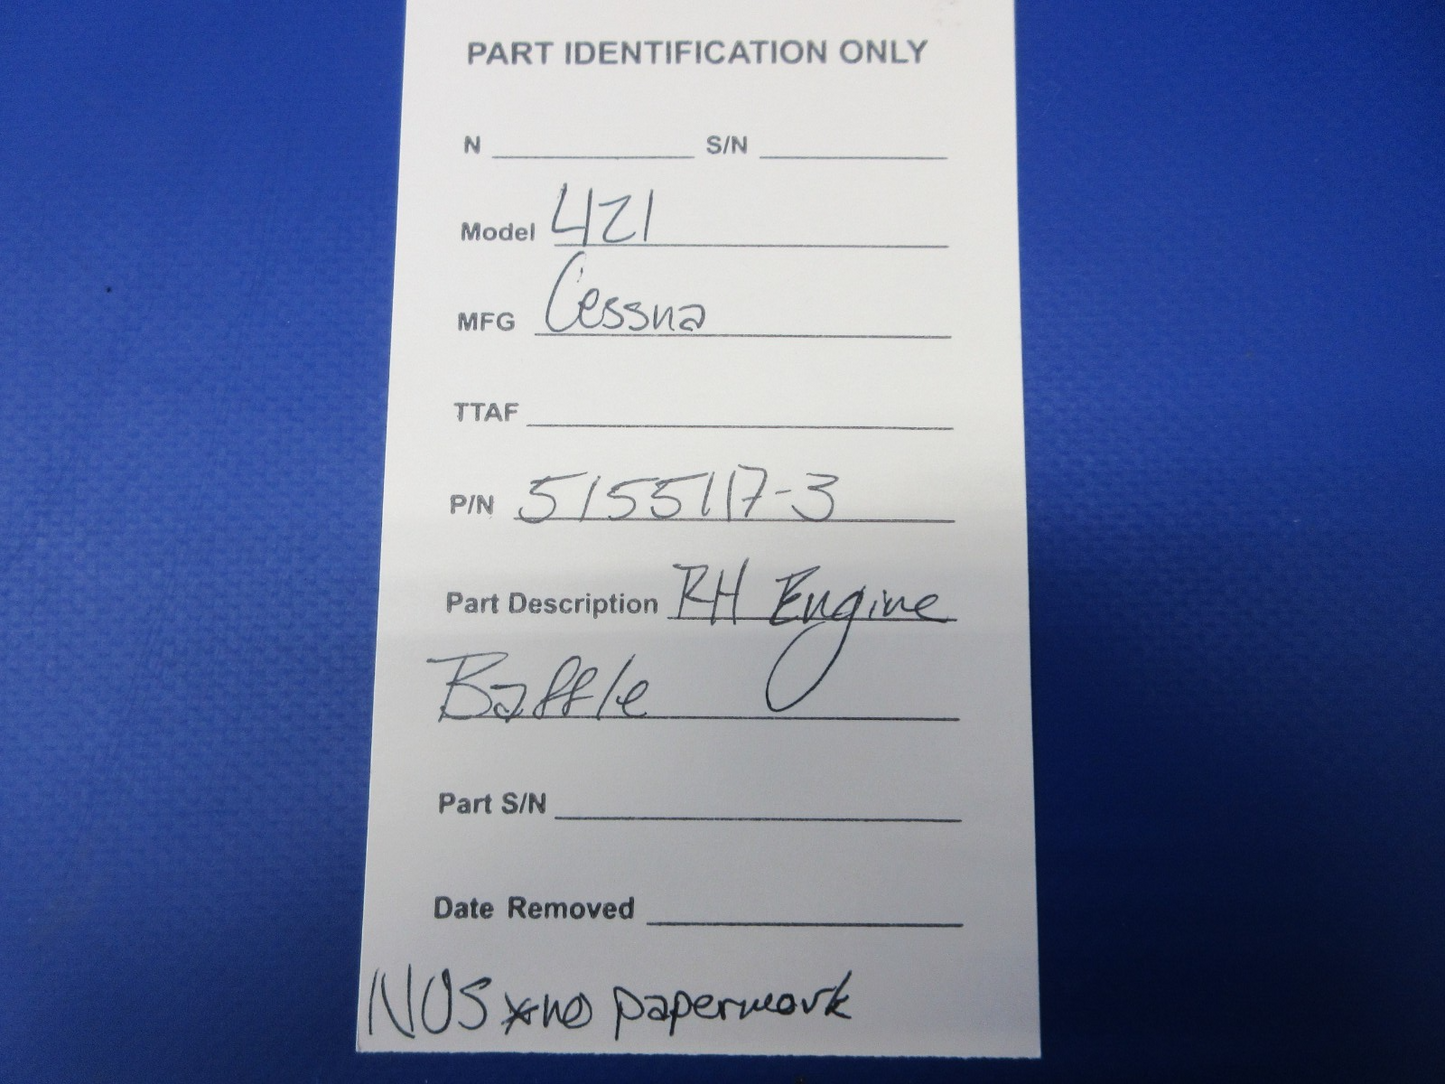 PART IDENTIFICATION ONLY
N S/N
Model 421
MFG Cessna
TTAF
P/N 5155117-3
Part Description RH Engine
Baffle
Part S/N
Date Removed
NOS *no paperwork